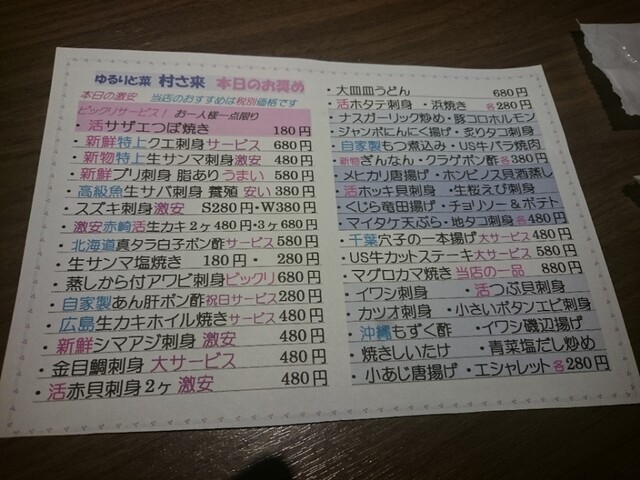 ゆるりと菜 村さ来 本日のお奨め
本日の激安 当店のおすすめは税別価格です
ビックリサービス! お一人様一点限り
・活サザエつぼ焼き 180円
・新鮮特上クエ刺身サービス 680円
・新物特上生サンマ刺身激安 480円
・新鮮ブリ刺身 脂ありうまい 580円
・高級魚生サバ刺身 養殖 安い 380円
・スズキ刺身激安 S280円・W380円
・激安赤崎活生カキ2ヶ480円・3ヶ680円
・北海道真タラ白子ポン酢サービス580円
・生サンマ塩焼き 180円・280円
・蒸しから付アワビ刺身ビックリ680円
・自家製あん肝ポン酢祝日サービス280円
・広島生カキホイル焼きサービス480円
・新鮮シマアジ刺身 激安 480円
・金目鯛刺身 大サービス 480円
・活赤貝刺身2ヶ 激安 480円
・大皿皿うどん 680円
・活ホタテ刺身・浜焼き 各280円
・ナスガーリック炒め・豚コロホルモン
・ジャンボにんにく揚げ・炙りタコ刺身
・自家製もつ煮込み・US牛バラ焼肉
・新物ぎんなん・クラゲポン酢各380円
・メヒカリ唐揚げ・ホンビノス貝酒蒸し
・活ホッキ貝刺身・生桜えび刺身
・くじら竜田揚げ・チョリソー&ポテト
・マイタケ天ぷら・地タコ刺身各480円
・千葉穴子の一本揚げ大サービス480円
・US牛カットステーキ大サービス580円
・マグロカマ焼き当店の一品 880円
・イワシ刺身 ・活つぶ貝刺身
・カツオ刺身 ・小さいボタンエビ刺身
・沖縄もずく酢 ・イワシ磯辺揚げ
・焼きしいたけ ・青菜塩だし炒め
・小あじ唐揚げ・エシャレット各280円